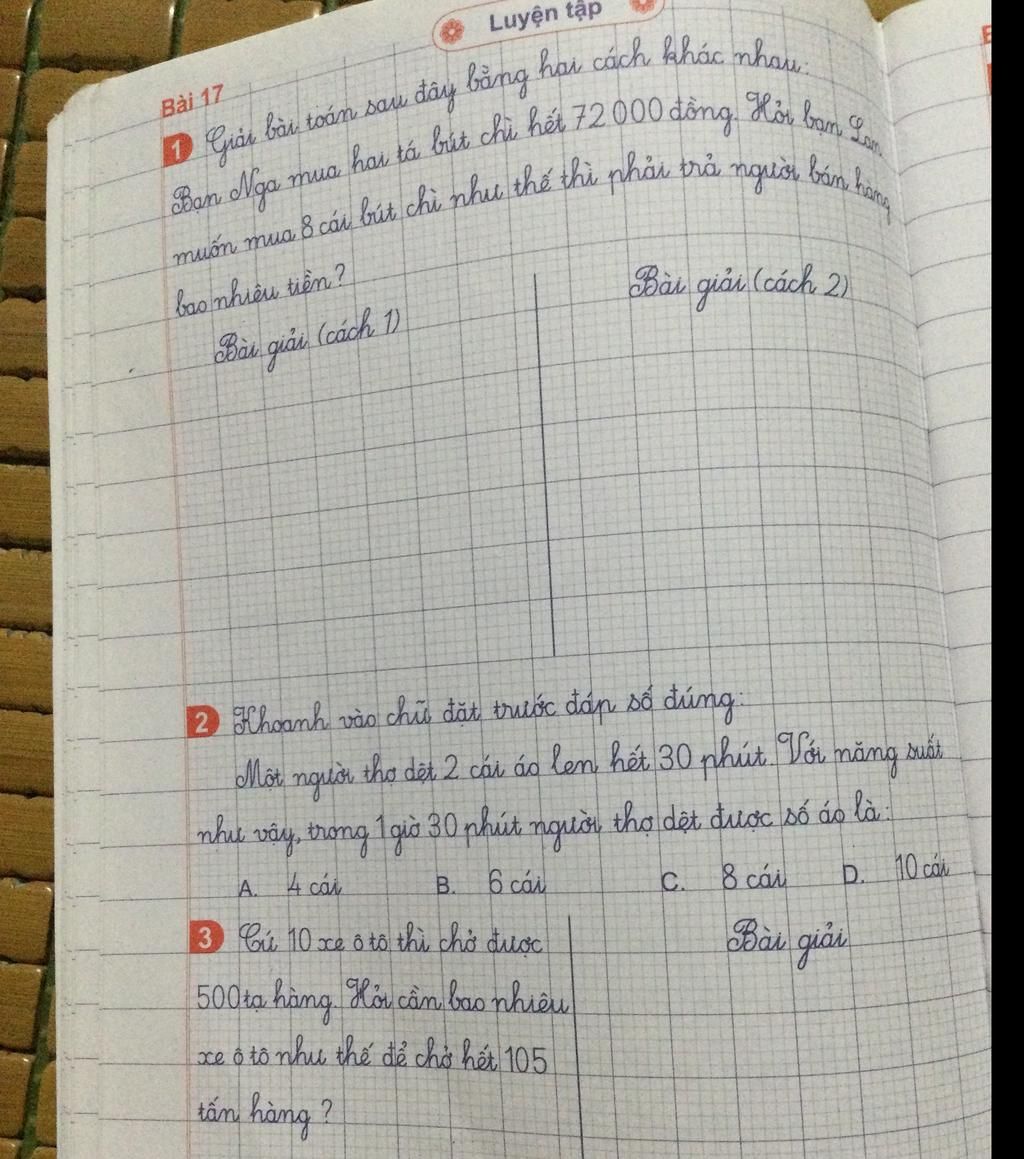 Luyện tập
Bài 17
1 Giải bài toán sau đây bằng hai cách khác nhau:
Bạn Nga mua hai tá bút chì hết 72 000 đồng. Hỏi bạn Lan
muốn mua 8 cái bút chì như thế thì phải trả người bán hàng
bao nhiêu tiền?
Bài giải (cách 1)
Bài giải (cách 2)
2 Khoanh vào chữ đặt trước đáp số đúng:
Một người thợ dệt 2 cái áo len hết 30 phút. Với năng suất
như vậy, trong 1 giờ 30 phút người thợ dệt được số áo là:
A. 4 cái B. 6 cái C. 8 cái D. 10 cái
3 Cứ 10 xe ô tô thì chở được
500 tạ hàng. Hỏi cần bao nhiêu
xe ô tô như thế để chở hết 105
tấn hàng?
Bài giải